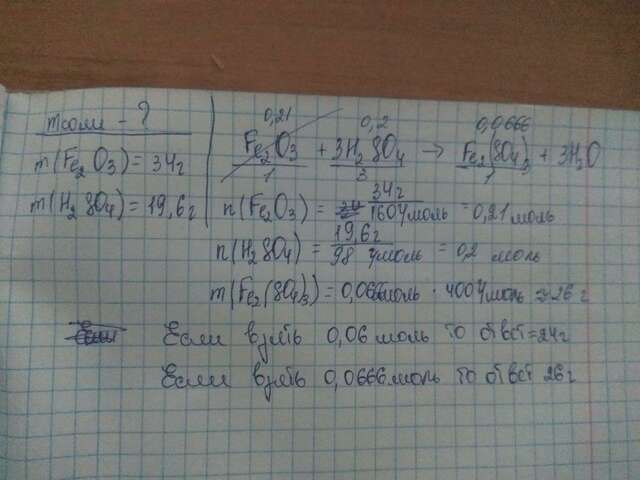 mсоли - ?
m(Fe₂O₃) = 34г
m(H₂SO₄) = 19,6г
0,21 0,2 0,0666
Fe₂O₃ + 3H₂SO₄ → Fe₂(SO₄)₃ + 3H₂O
1 3 1
n(Fe₂O₃) = 34г / 160г/моль = 0,21 моль
n(H₂SO₄) = 19,6г / 98 г/моль = 0,2 моль
m(Fe₂(SO₄)₃) = 0,066моль · 400г/моль = 26г
Если взять 0,06 моль то ответ = 24г
Если взять 0,0666моль то ответ 26г